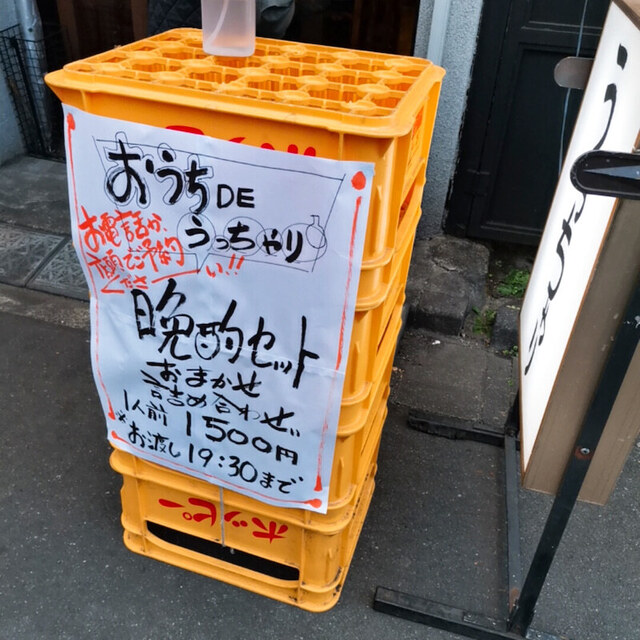 おうちDE
うっちゃり
お電話か
店頭で予約
下さい!!
晩酌セット
おまかせ
詰め合わせ
1人前 1500円
※お渡し19:30まで
ホッピー
うっちゃり